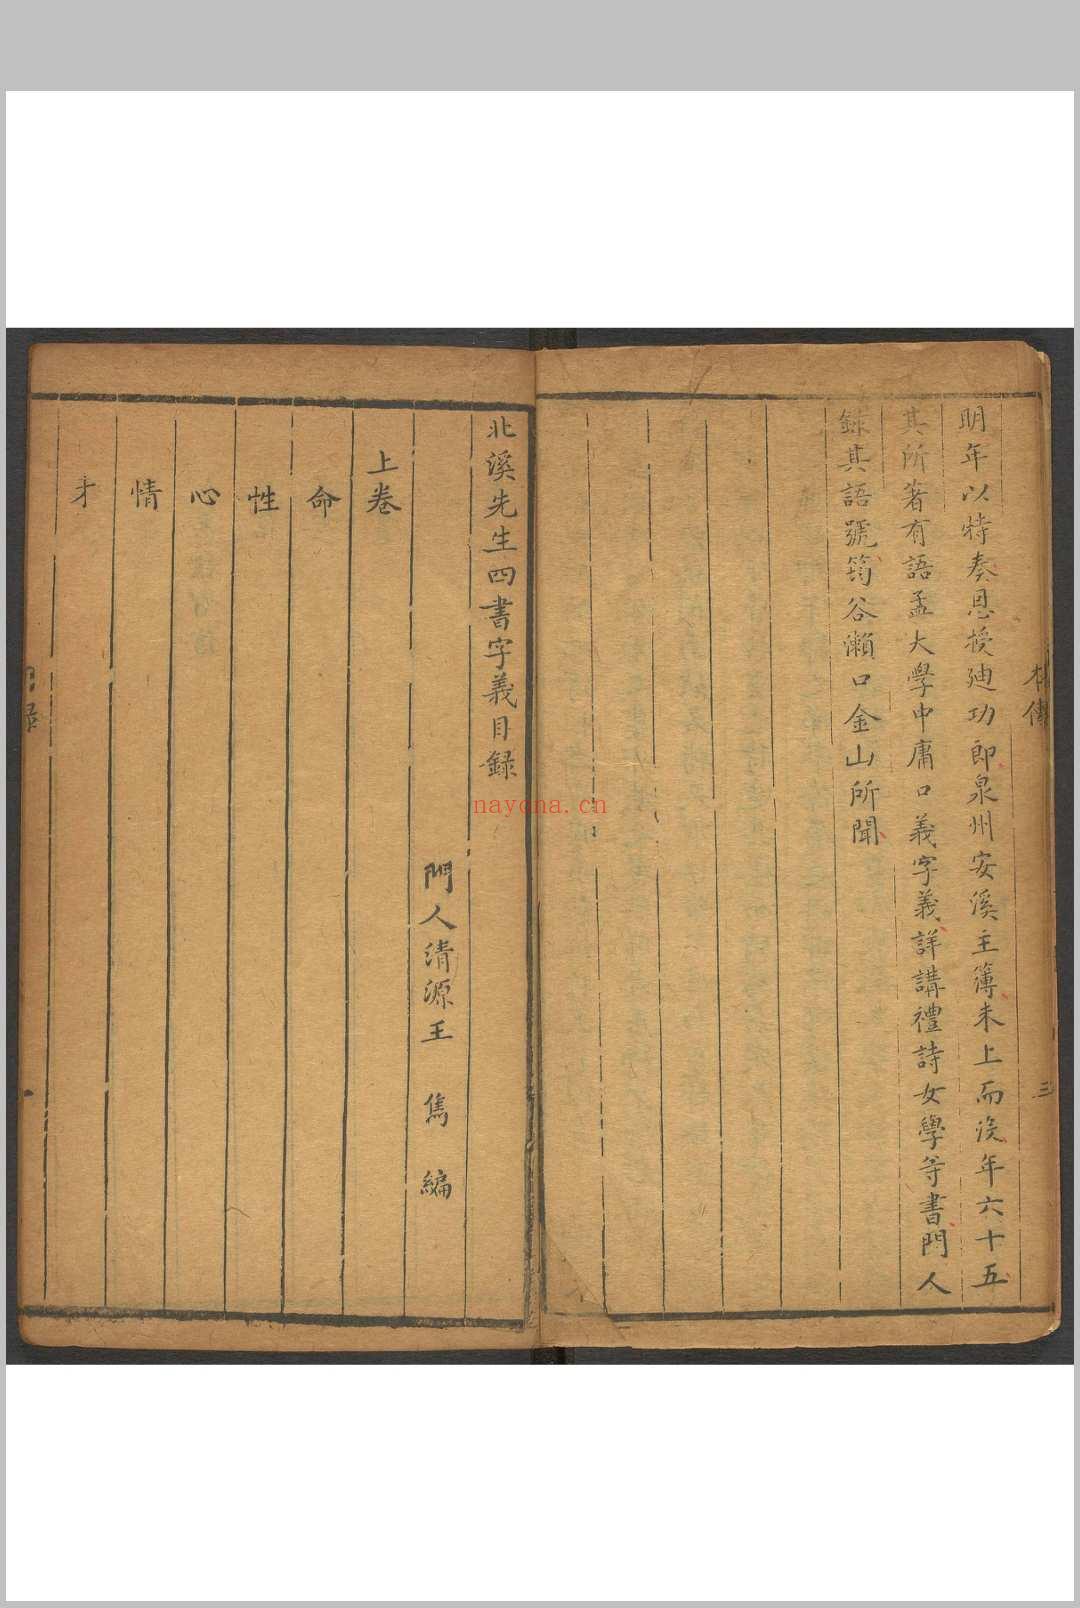 本傳
三
明年以特奏恩授廸功郎泉州安溪主簿未上而没年六十五
其所著有語孟大學中庸口義字義詳講禮詩女學等書門人
錄其語號筠谷瀨口金山所聞
北溪先生四書字義目録
門人清源王 雋 編
上卷
命
性
心
情
才
nayona.cn